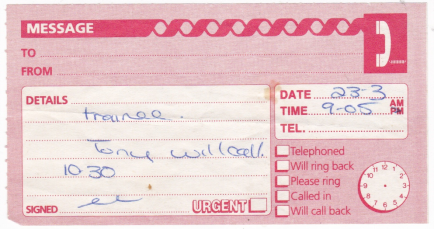 MESSAGE
TO
FROM
DETAILS
trainee.
Tony will call.
10-30
SIGNED
URGENT
DATE 23-3
TIME 9-05 AM PM
TEL.
Telephoned
Will ring back
Please ring
Called in
Will call back
12
1
2
3
4
5
6
7
8
9
10
11